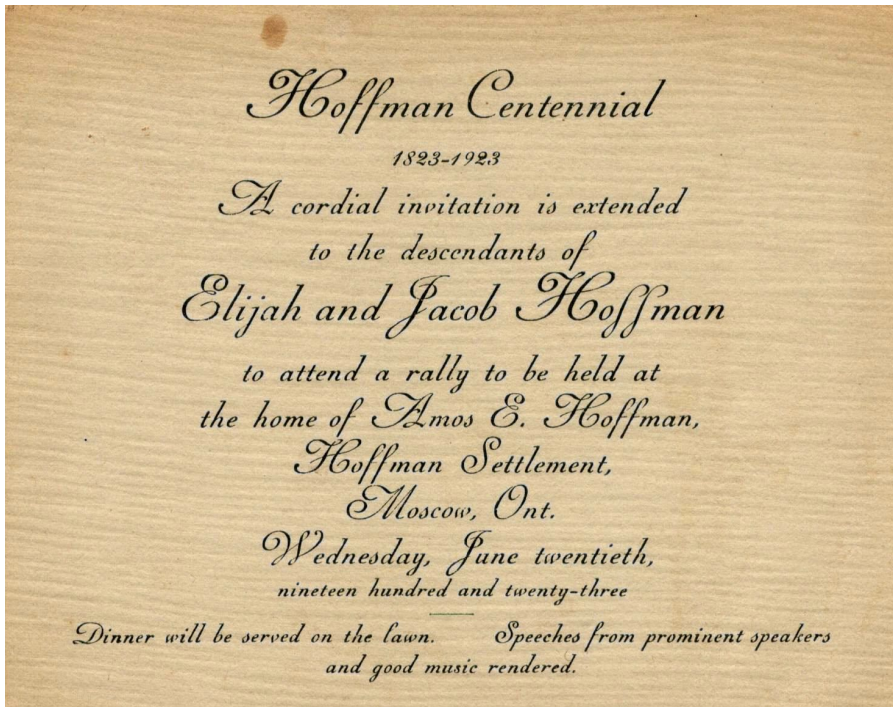 Hoffman Centennial
1823-1923
A cordial invitation is extended
to the descendants of
Elijah and Jacob Hoffman
to attend a rally to be held at
the home of Amos E. Hoffman,
Hoffman Settlement,
Moscow, Ont.
Wednesday, June twentieth,
nineteen hundred and twenty-three
Dinner will be served on the lawn. Speeches from prominent speakers
and good music rendered.